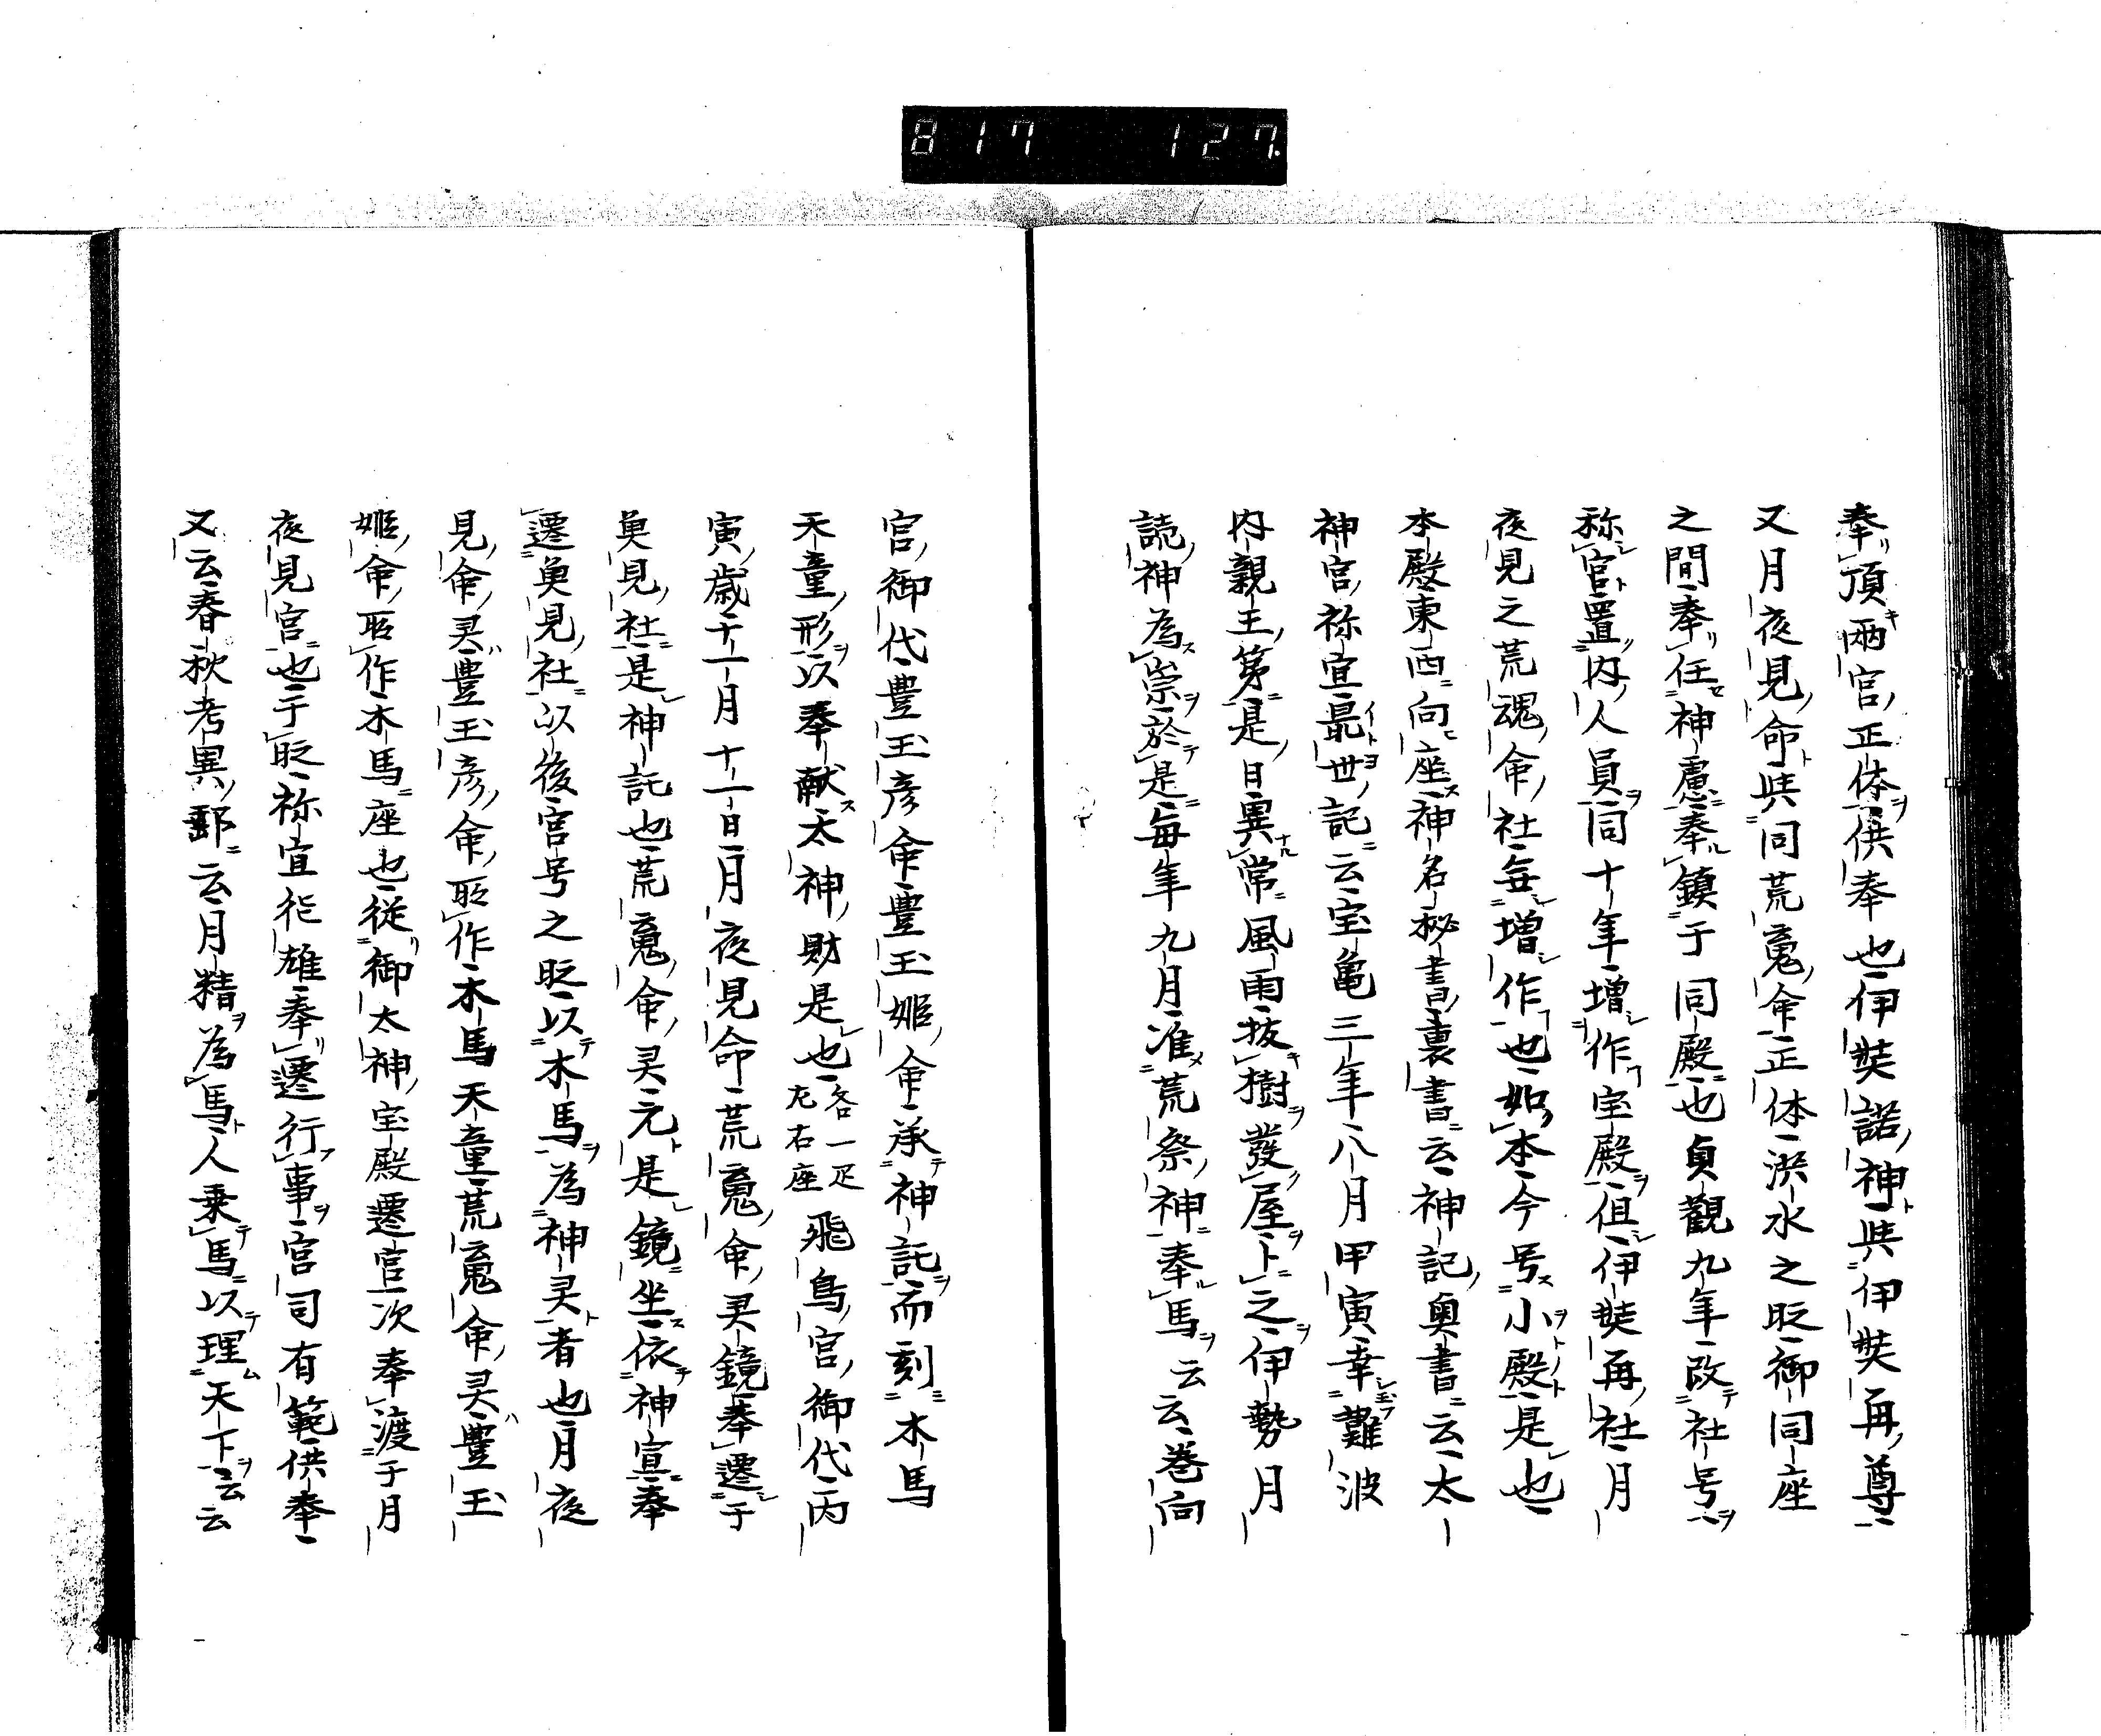 817 127.
奉頂兩宮正体供奉也伊奘諾神与伊奘冉尊
又月夜見命与同荒魂命正体洪水之眨御同座
之間奉任神慮奉鎮于同殿也貞觀九年改社号
称宮置内人員同十年増作宝殿但伊奘冉社月
夜見之荒魂命社毎増作也如本今号小殿是也
本殿東西向座神名秘書裏書云神記奥書云太
神宮祢宜最世記云宝亀三年八月甲寅幸難波
内親王第是日異常風雨抜樹發屋卜之伊勢月
読神為祟於是毎年九月准荒祭神奉馬云云巻向
宮御代豊玉彦命豊玉姫命承神託而刻木馬
天童形以奉献太神財是也各一疋左右座飛鳥宮御代丙
寅歳十一月十一日月夜見命荒魂命灵鏡奉遷于
魚見社是神託也荒魂命灵元是鏡坐依神宣奉
遷魚見社以後宮号之眨以木馬為神灵者也月夜
見命灵豊玉彦命所作木馬天童荒魂命灵豊玉
姫命所作木馬座也従御太神宝殿遷宮次奉渡于月
夜見宮也于眨祢宜花雄奉遷行事宮司有範供奉
又云春秋考異郵云月精為馬人乗馬以理天下云云